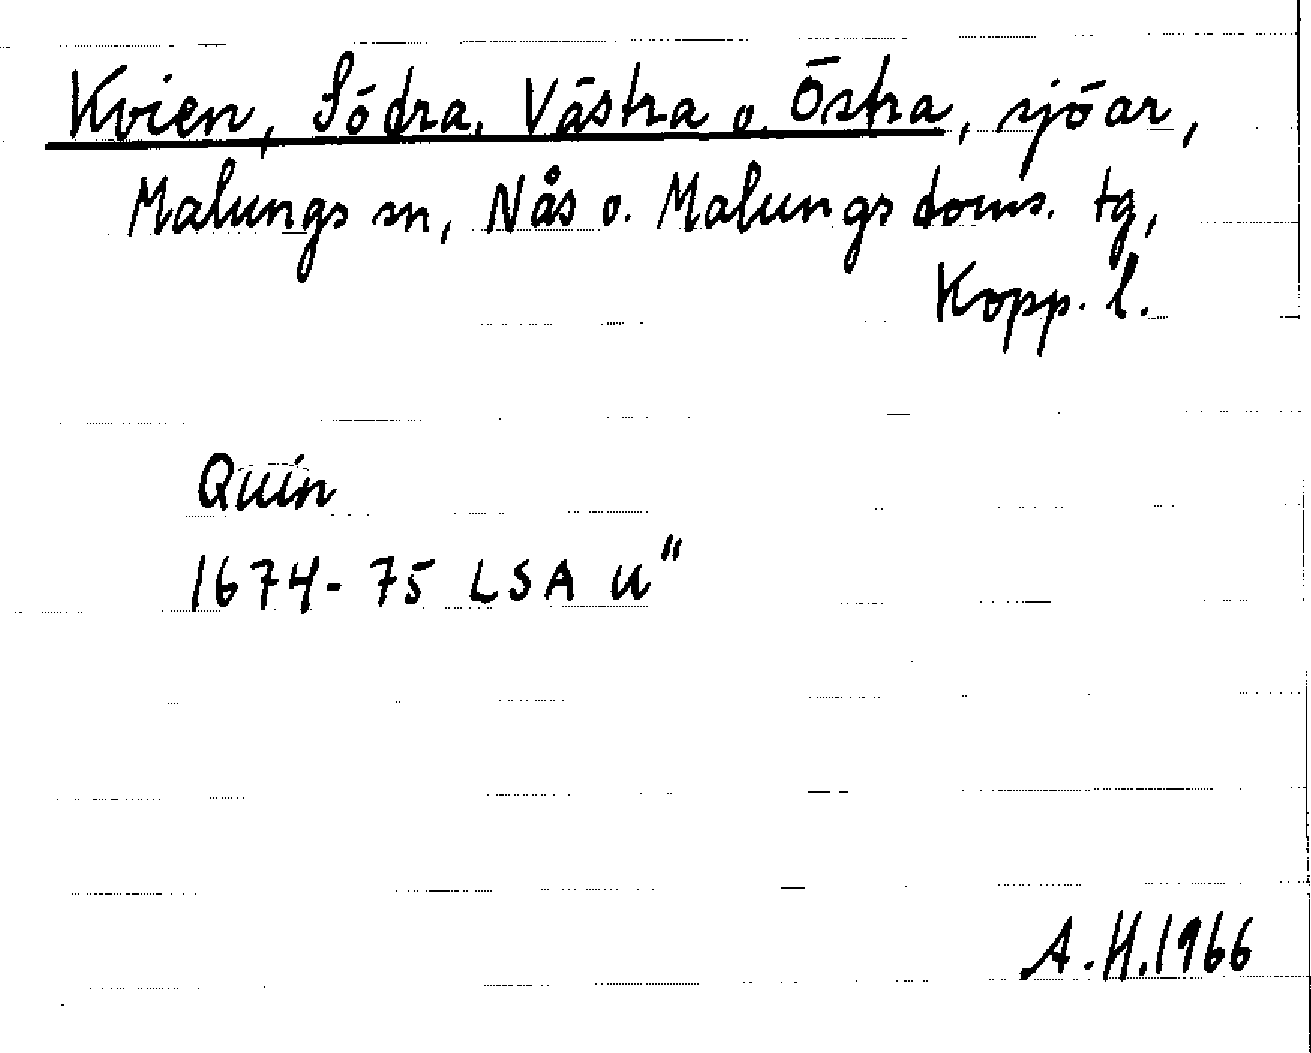 Kvien, Södra, Västra o. Östra, sjöar,
Malungs sn, Nås o. Malungs doms. tg,
Kopp. l.
Quin
1674-75 LSA U"
A.H.1966